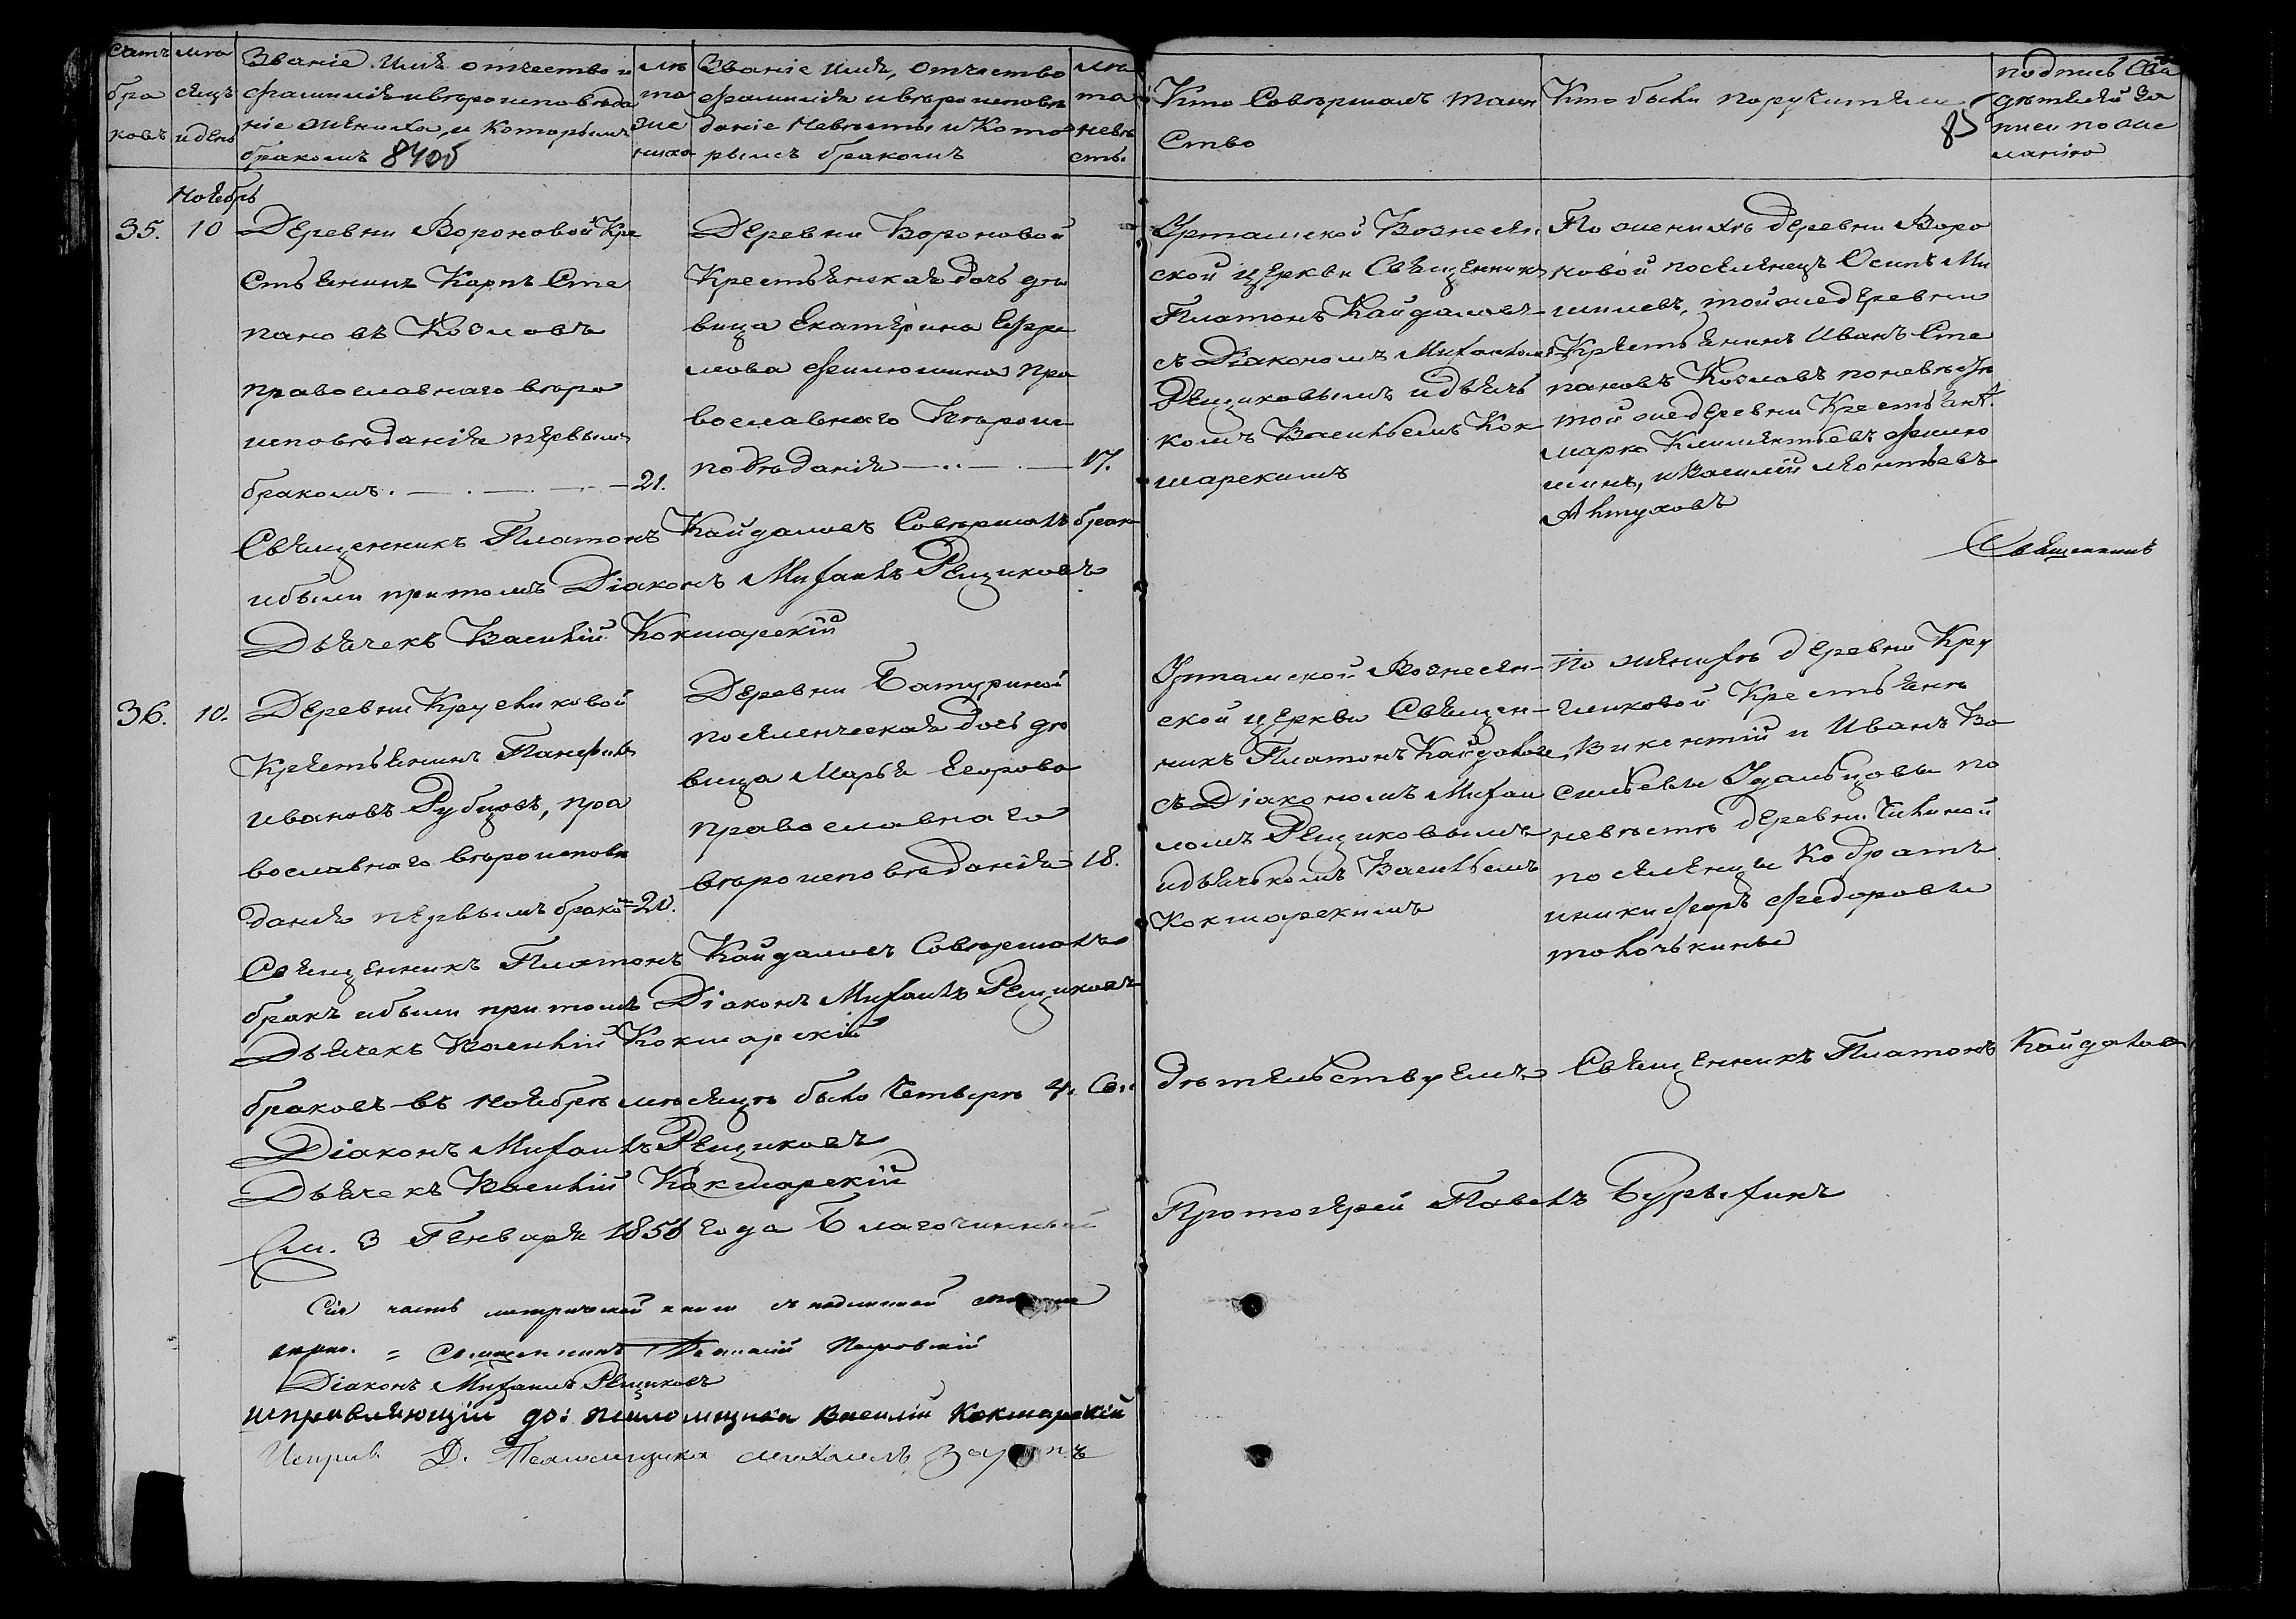 Счетъ бра ковъ
Мѣсяцъ и день
Званіе Имя отчество и
фамилія и вѣроисповѣда
ніе жениха, и которымъ
бракомъ 8406
лѣта жениха
Званіе имя, отчество
фамилія и вѣроисповѣ
даніе невѣсты и кото
рымъ бракомъ
лѣта невѣсты
Кто Совѣршалъ таин
Ство
Кто были поручители
85
подпись Сви
дѣтелей За
писи по же
ланію
Ноябрь
35. 10
Деревни Вороновой Кре
Стьянинъ Карпъ Сте
пановъ Козловъ
православнаго вѣро
исповѣданія первымъ
бракомъ. 21.
Деревни Вороновой
Крестьянская дочь дѣ
вица Екатерина Ефре
мова Филюшина пра
вославнаго Вѣроис
повѣданія 17.
Уртамской Вознесен
ской церкви Священникъ
Платонъ Кайдаловъ
съ Діакономъ Михаиломъ
Рещиковымъ и дьяч
комъ Васильемъ Кок
шарскимъ
По женихѣ деревни Воро
новой поселенецъ Осипъ Ми
шилевъ, той же деревни
Крестьянинъ Иванъ Сте
пановъ Козловъ по невѣстѣ
той же деревни Крестьяне
Марко Климентьевъ Филю
шинъ, и Василій Леонтьевъ
Алтуховъ
Священникъ Платонъ Кайдаловъ Совѣршалъ бракъ
и были притомъ Діаконъ Михаилъ Рещиковъ
Дьячекъ Василій Кокшарскій
Священникъ
36. 10.
Деревни Кругликовой
Крестьянинъ Панфилъ
Ивановъ Рубцовъ, пра
вославнаго вѣроисповѣ
данія первымъ брако 20.
Деревни Батуриной
поселенческая дочь дѣ
вица Марья Егорова
православнаго
вѣроисповѣданія 18.
Уртамской Вознесен
ской церкви Священ
никъ Платонъ Кайдаловъ
съ Діакономъ Михаи
ломъ Рещиковымъ
и дьячькомъ Васильемъ
Кокшарскимъ
По женихѣ деревни Кру
гликовой Крестьяне
Викентій и Иванъ Ва
сильевы Удальцовы по
невѣстѣ деревни Чилиной
поселенцы Кодратъ
и Никифоръ Федоровы
толочькины
Священникъ Платонъ Кайдаловъ Совѣршалъ
бракъ и были притомъ Діаконъ Михаилъ Рещиковъ
Дьячекъ Василій Кокшарскій
браковъ въ ноябрѣ мѣсяцѣ было Четыре 4. Сви
дѣтельствуемъ Священникъ Платонъ Кайдаловъ
Діаконъ Михаилъ Рещиковъ
Дьячекъ Василій Кокшарскій
3 Генваря 1856 года Благочинный
Протоіерей Павелъ Бурыхинъ
Сія часть метрической книги съ подлинной
Священникъ
Діаконъ Михаилъ Рещиковъ
исправляющій до: псаломщика Василій Кокшарскій
Исправ Д. Псаломщика Михаилъ